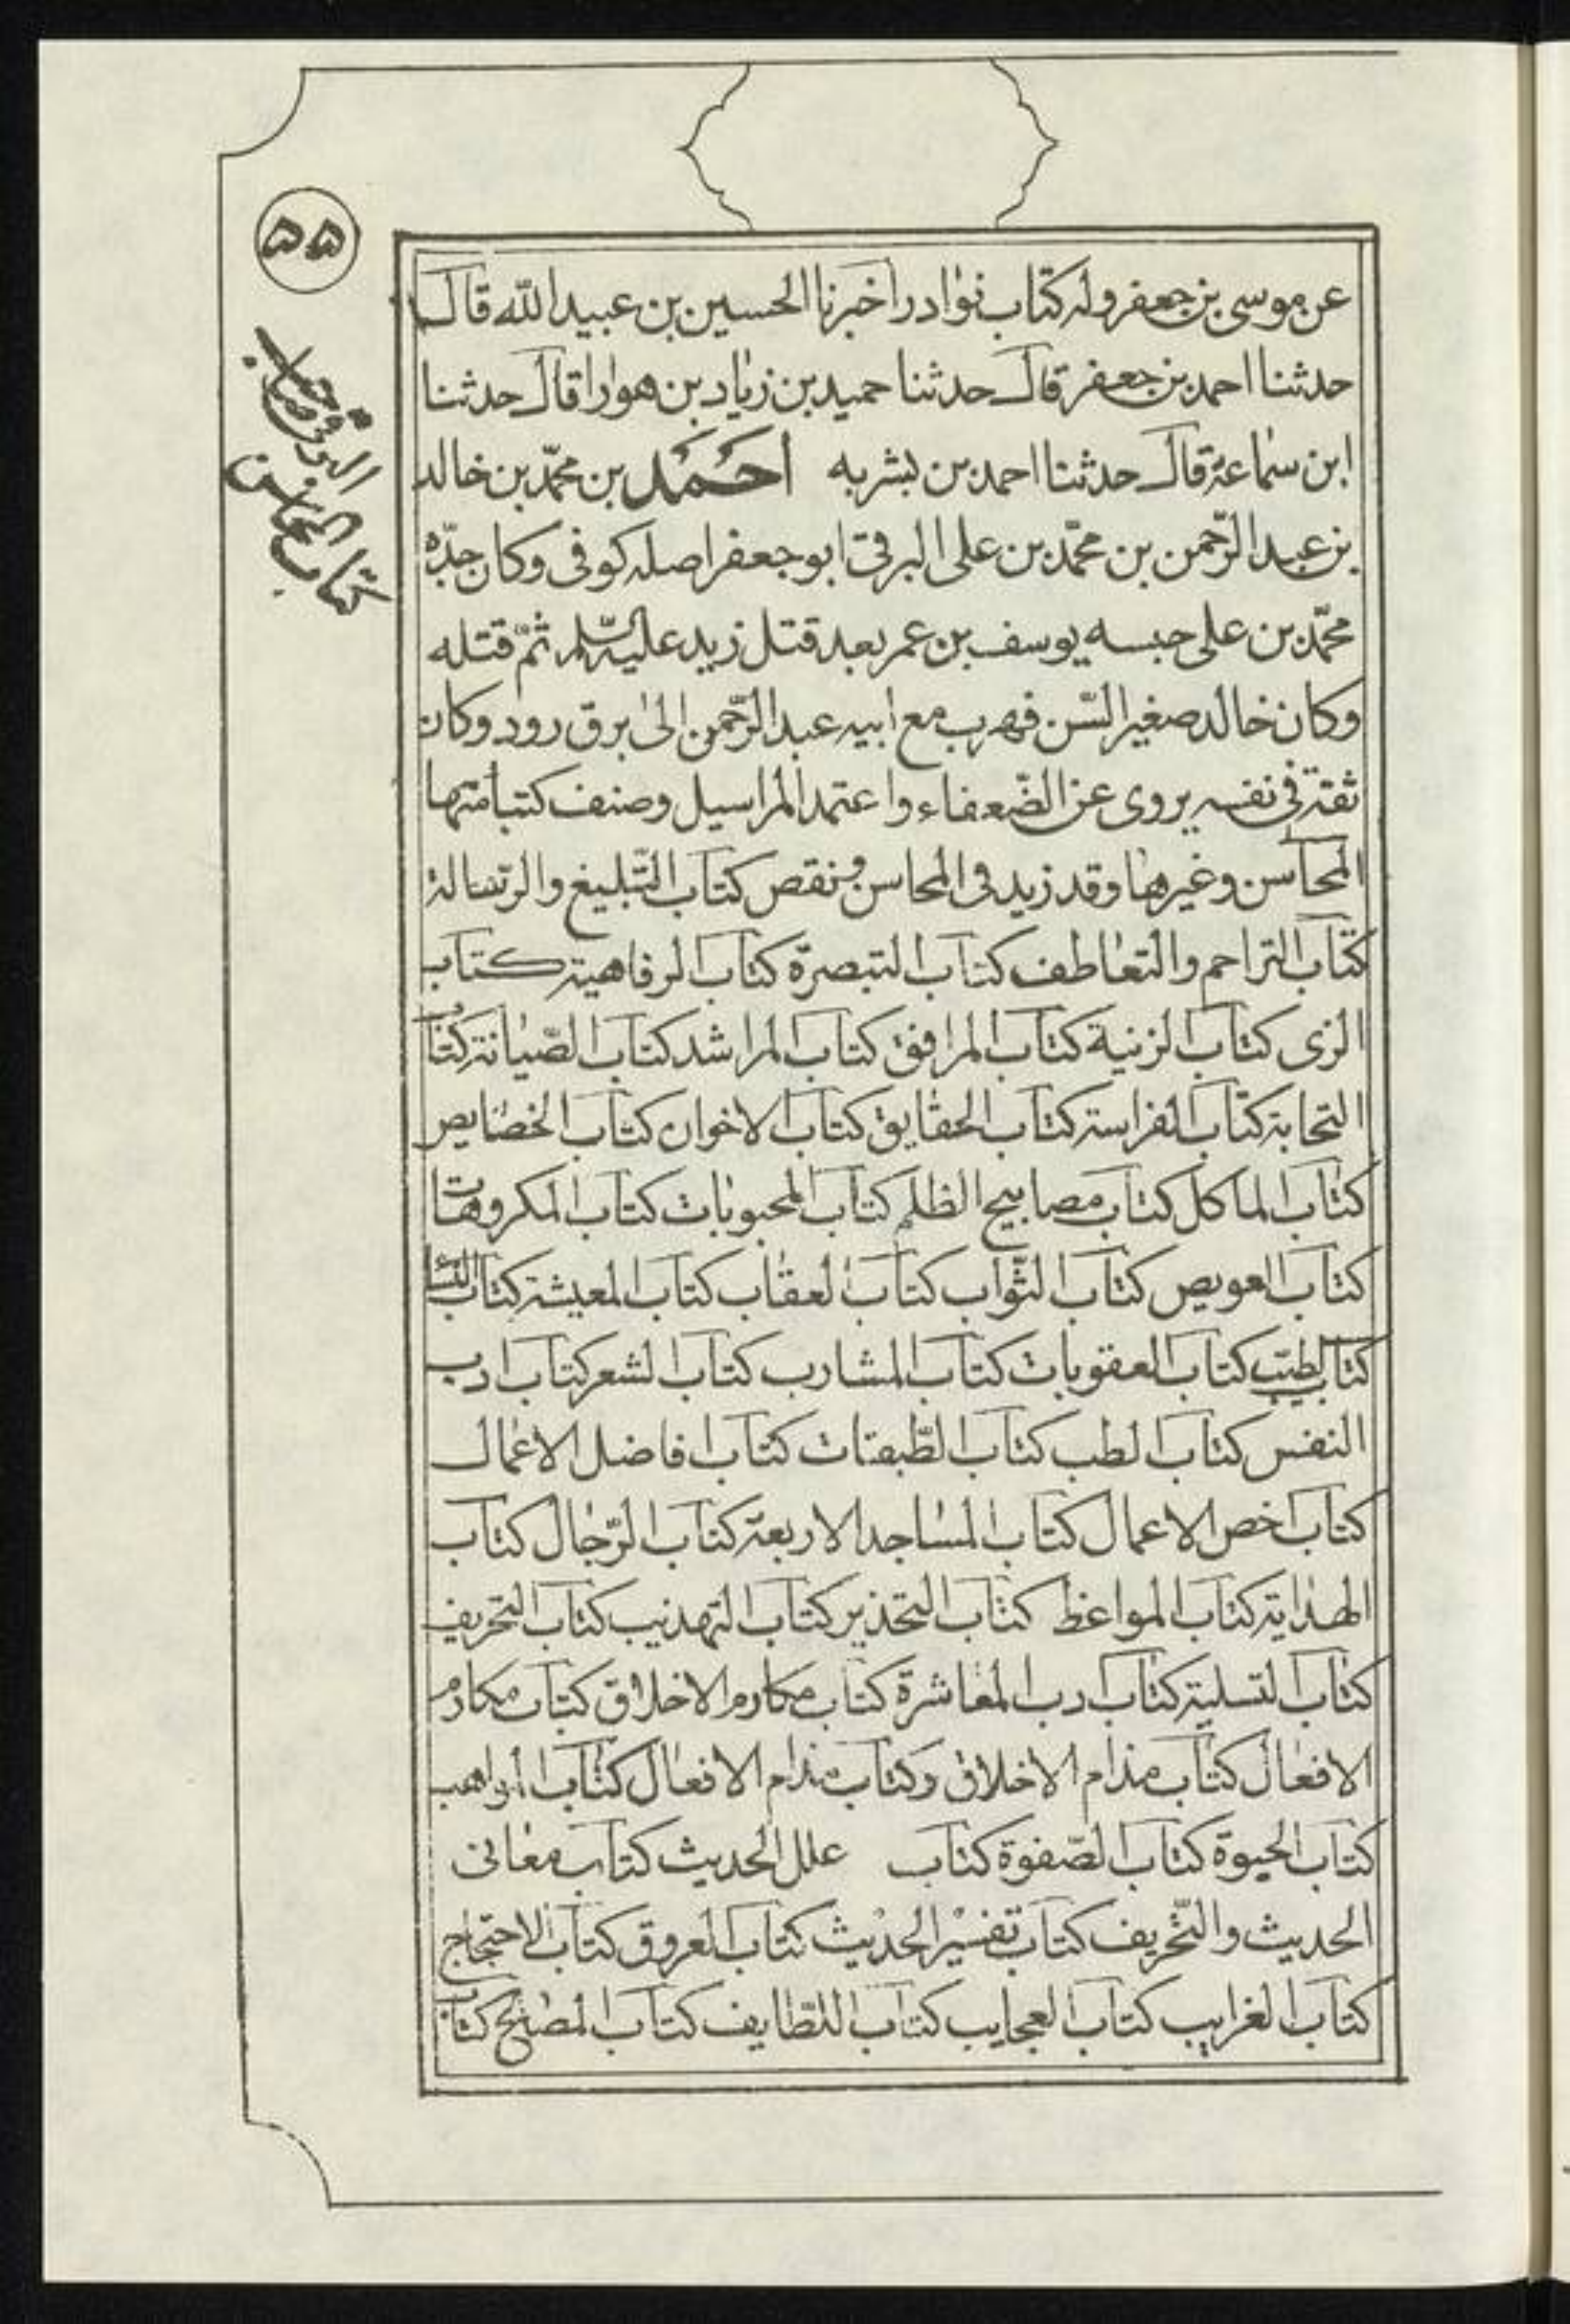 ۵۵
البرقی صاحب
کتاب المحاسن
عن موسی بن جعفر وله کتاب نوادر اخبرنا الحسین بن عبید الله قال
حدثنا احمد بن جعفر قال حدثنا حمید بن زیاد بن هوارا قال حدثنا
ابن سماعة قال حدثنا احمد بن بشر به احمد بن محمّد بن خالد
بن عبد الرّحمن بن محمّد بن علی البرقی ابو جعفر اصله کوفی وکان جدّه
محمّد بن علی حبسه یوسف بن عمر بعد قتل زید علیه السّلم ثمّ قتله
وکان خالد صغیر السّن فهرب مع ابیه عبد الرّحمن الی برق رود وکان
ثقة فی نفسه یروی عن الضّعفاء واعتمد المراسیل وصنف کتبا منها
المحاسن وغیرها وقد زید فی المحاسن ونقص کتاب التّبلیغ والرّسالة
کتاب التراحم والتعاطف کتاب التبصرة کتاب الرفاهیة کتاب
الزی کتاب الزینة کتاب المرافق کتاب المراشد کتاب الصّیانة کتاب
النجابة کتاب الفراسة کتاب الحقایق کتاب الاخوان کتاب الخصایص
کتاب الماکل کتاب مصابیح الظلم کتاب المحبوبات کتاب المکروهات
کتاب العویص کتاب الثّواب کتاب العقاب کتاب المعیشة کتاب النساء
کتاب الطیّب کتاب العقوبات کتاب المشارب کتاب الشعر کتاب ادب
النفس کتاب الطب کتاب الطّبقات کتاب افاضل الاعمال
کتاب اخص الاعمال کتاب المساجد الاربعة کتاب الرّجال کتاب
الهدایة کتاب المواعظ کتاب التحذیر کتاب التهذیب کتاب التحریف
کتاب التسلیة کتاب ادب المعاشرة کتاب مکارم الاخلاق کتاب مکارم
الافعال کتاب مذام الاخلاق وکتاب مذام الافعال کتاب المواهب
کتاب الحیوة کتاب الصّفوة کتاب علل الحدیث کتاب معانی
الحدیث والتّحریف کتاب تفسیر الحدیث کتاب العروق کتاب الاحتجاج
کتاب الغرایب کتاب العجایب کتاب اللطایف کتاب المصالح کتاب